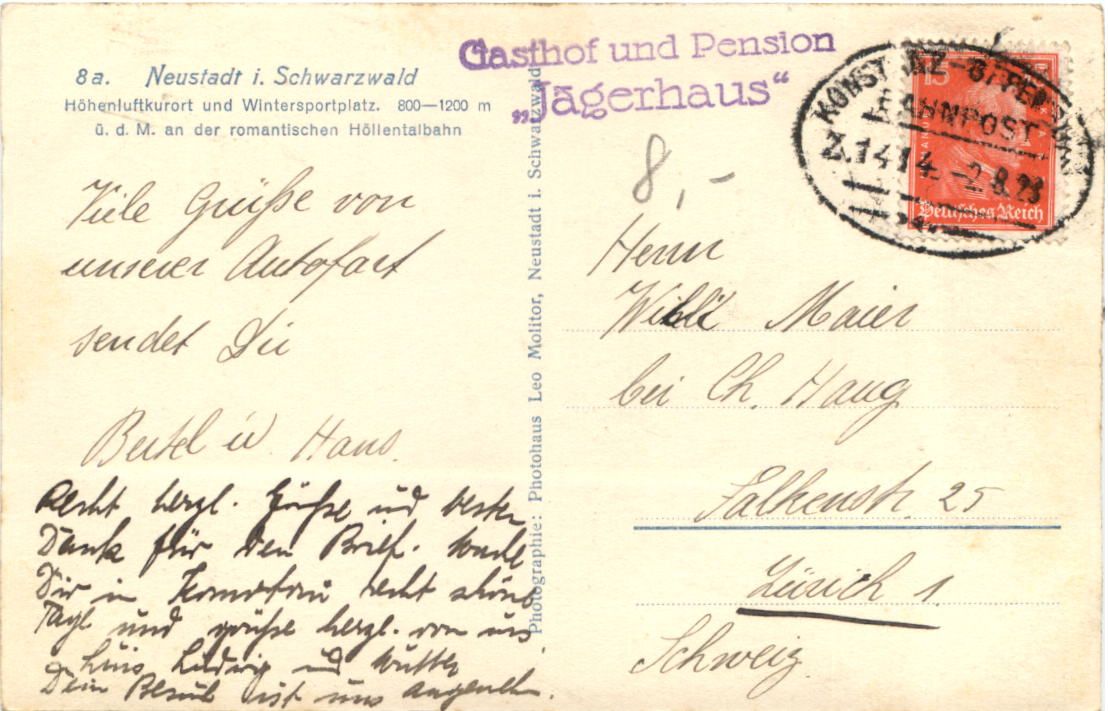 8a. Neustadt i. Schwarzwald
Höhenluftkurort und Wintersportplatz. 800—1200 m
ü. d. M. an der romantischen Höllentalbahn
Gasthof und Pension
„Jägerhaus“
8,-
KONSTANZ-OFFENBURG
BAHNPOST
Z.1414 -2.8.
15
Deutsches Reich
Viele Grüße von
unserer Autofart
sendet Dir
Bertel u Hans.
Recht herzl. Grüße und besten
Dank für den Brief.
Dir in recht schöne
Tage und grüße herzl. von uns
Ludwig und Mutter
Dein Besuch ist uns angenehm.
Photographie: Photohaus Leo Molitor, Neustadt i. Schwarzwald
Herrn
Willi Maier
bei Ch. Haug
Falkenstr. 25
Zürich 1.
Schweiz